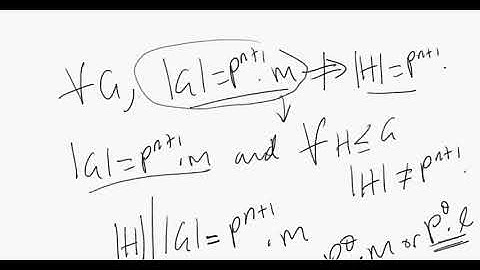 ∀G, |G|=pⁿ⁺¹.m ⇏ |H|=pⁿ⁺¹.
↓
|G|=pⁿ⁺¹.m and ∀H≤G
|H|≠pⁿ⁺¹.
|H| | |G|=pⁿ⁺¹.m
p^θ.m or p^θ.l